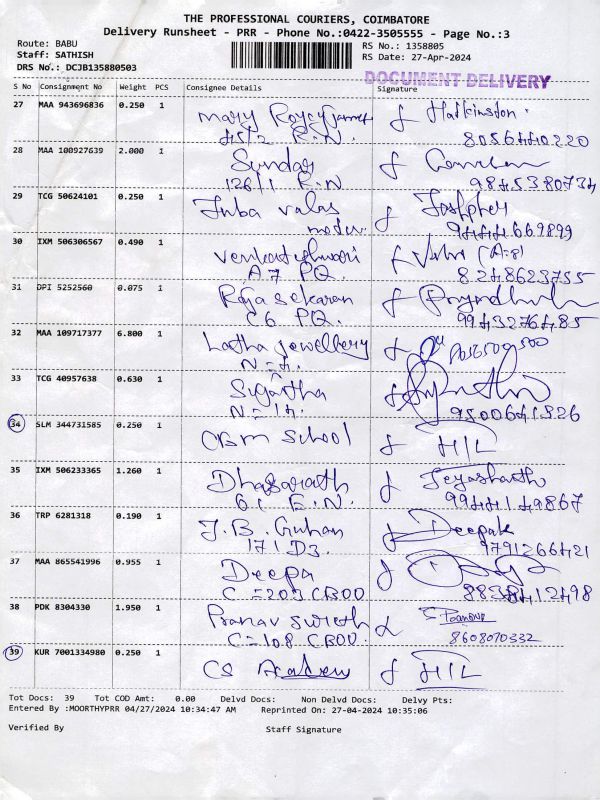 THE PROFESSIONAL COURIERS, COIMBATORE
Delivery Runsheet - PRR - Phone No.:0422-3505555 - Page No.:3
Route: BABU RS No.: 1358805
Staff: SATHISH RS Date: 27-Apr-2024
DRS No.: DCJB135880503
DOCUMENT DELIVERY
S No Consignment No Weight PCS Consignee Details Signature
27 MAA 943696836 0.250 1 Mary
45/2 E.N. 8056440220
28 MAA 100927639 2.000 1 Sundar
126/1 E.N 9845380734
29 TCG 50624101 0.250 1 Juba valas
9444669899
30 IXM 506306567 0.490 1 Venkateshwari
A7 PQ. 8248623755
31 DPI 5252560 0.075 1 Rajasekaran
C6 PQ. 9943276485
32 MAA 109717377 6.800 1 Latha jewellery
N=4.
33 TCG 40957638 0.630 1
N=14. 9500641326
34 SLM 344731585 0.250 1 CBM School H/L
35 IXM 506233365 1.260 1 Dhasarath Jeyashanth
61 E.N. 9944149867
36 TRP 6281318 0.190 1 J.B. Guhan Deepak
171 D3. 9791266421
37 MAA 865541996 0.955 1 Deepa
C=203 CBOO 8838412498
38 PDK 8304330 1.950 1 Pranav
C=108 CBOO. 8608070332
39 KUR 7001334980 0.250 1 CS Academy H/L
Tot Docs: 39 Tot COD Amt: 0.00 Delvd Docs: Non Delvd Docs: Delvy Pts:
Entered By :MOORTHYPRR 04/27/2024 10:34:47 AM Reprinted On: 27-04-2024 10:35:06
Verified By Staff Signature